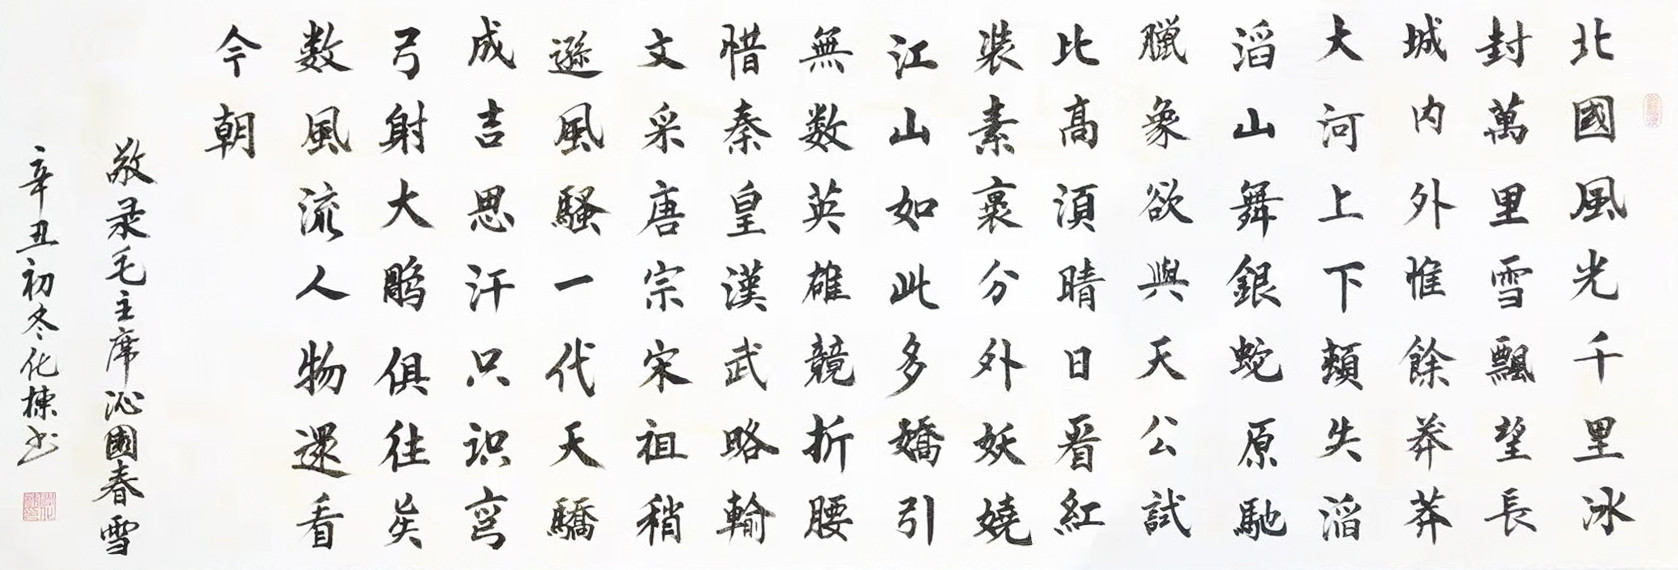 北國風光千里冰
封萬里雪飄望長
城内外惟餘莽莽
大河上下頓失滔
滔山舞銀蛇原馳
臘象欲與天公試
比高須晴日看紅
裝素裹分外妖嬈
江山如此多嬌引
無数英雄競折腰
惜秦皇漢武略輸
文采唐宗宋祖稍
遜風騷一代天驕
成吉思汗只识弯
弓射大鵰俱往矣
数風流人物還看
今朝
敬录毛主席沁國春雪
辛丑初冬化楝书